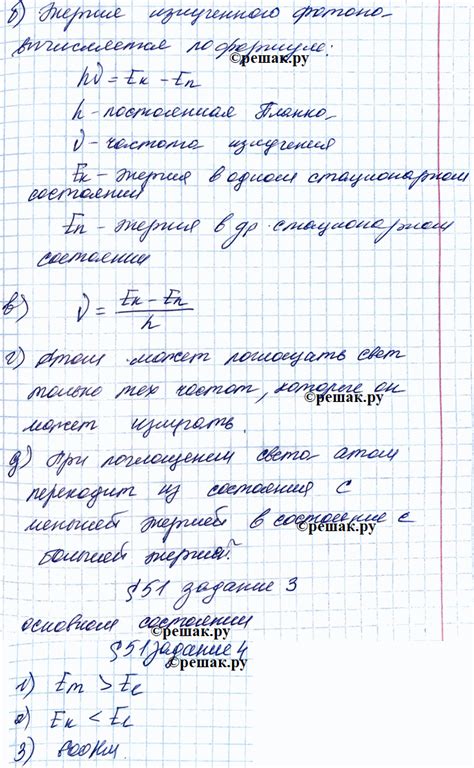 б) Энергия излученного фотона
вычисляется по формуле:
©решак.ру
hν = Eк − Eп
h - постоянная Планка
ν - частота излучения
Eк - энергия в одном стационарном
состоянии
Eп - энергия в др. стационарном
состоянии
в) ν = Eк − Eп / h
г) Атом может поглощать свет
только тех частот, которые он
©решак.ру
может излучать.
д) При поглощении света атом
переходит из состояния с
меньшей энергией в состояние с
©решак.ру
большей энергией.
§51 задание 3
основном состоянии
©решак.ру
§51 задание 4
©решак.ру
1) Em > Eс
2) Eк < Eс
3)